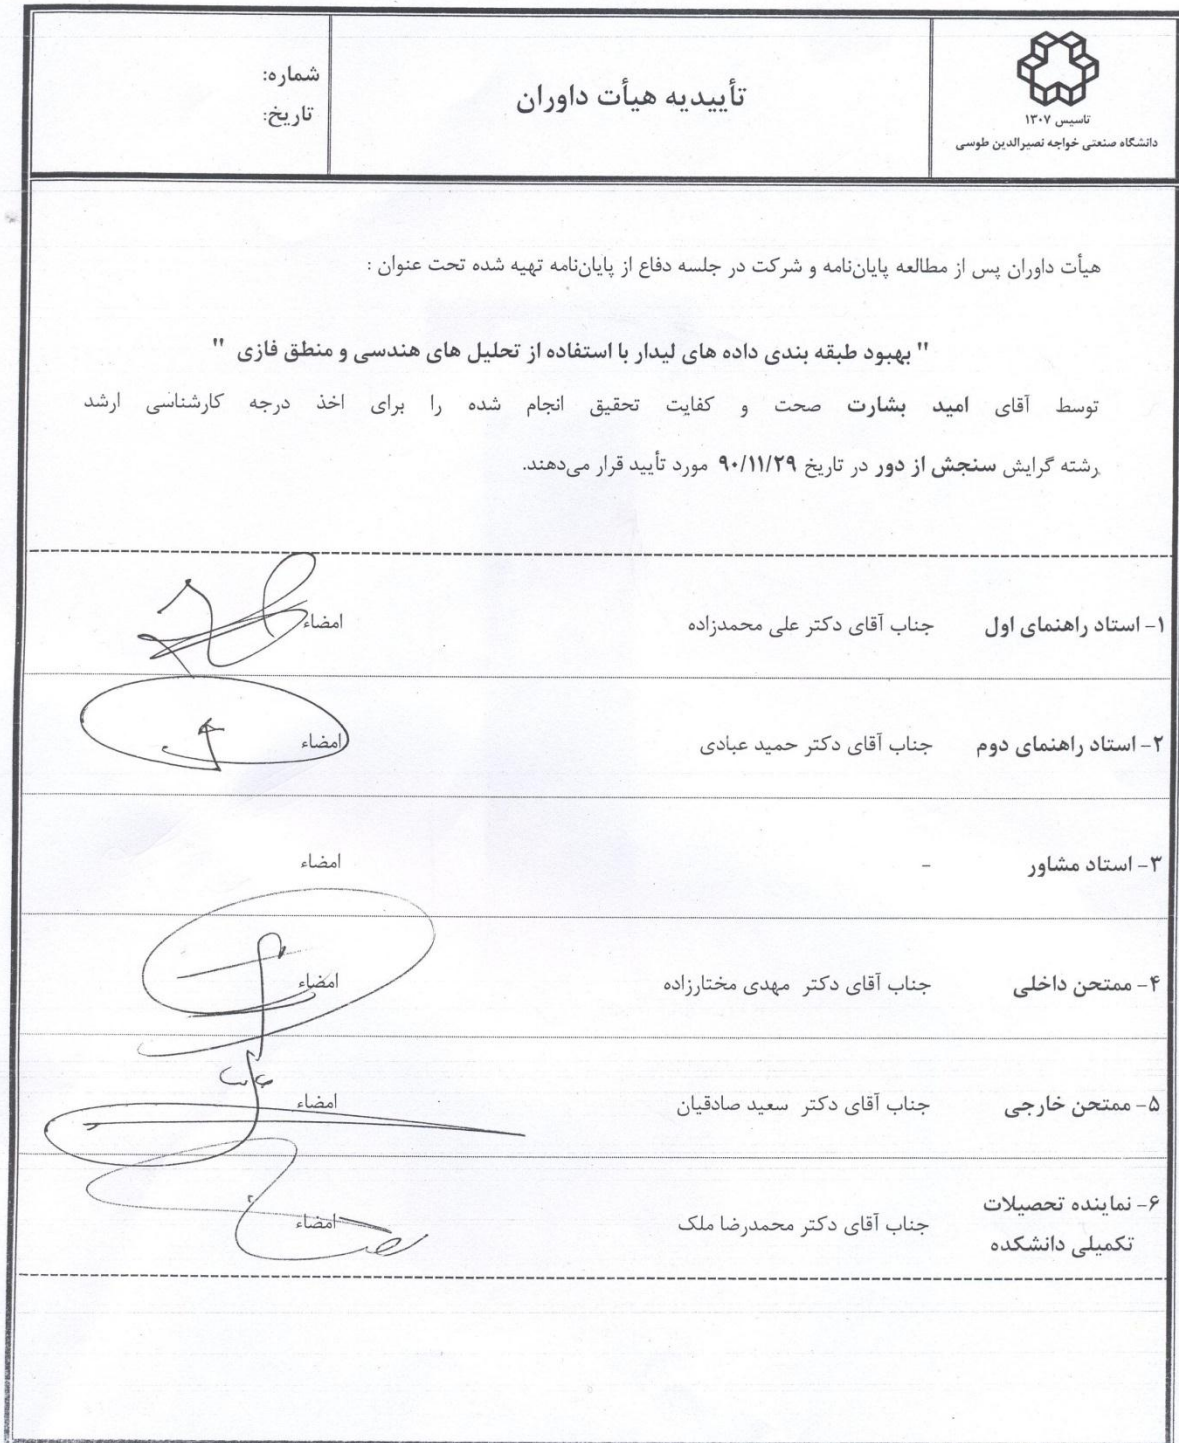 تاسیس ۱۳۰۷
دانشگاه صنعتی خواجه نصیرالدین طوسی
تأییدیه هیأت داوران
شماره:
تاریخ:
هیأت داوران پس از مطالعه پایان‌نامه و شرکت در جلسه دفاع از پایان‌نامه تهیه شده تحت عنوان :
" بهبود طبقه بندی داده های لیدار با استفاده از تحلیل های هندسی و منطق فازی "
توسط آقای امید بشارت صحت و کفایت تحقیق انجام شده را برای اخذ درجه کارشناسی ارشد
رشته گرایش سنجش از دور در تاریخ ۹۰/۱۱/۲۹ مورد تأیید قرار می‌دهند.
۱- استاد راهنمای اول جناب آقای دکتر علی محمدزاده امضاء
۲- استاد راهنمای دوم جناب آقای دکتر حمید عبادی امضاء
۳- استاد مشاور - امضاء
۴- ممتحن داخلی جناب آقای دکتر مهدی مختارزاده امضاء
۵- ممتحن خارجی جناب آقای دکتر سعید صادقیان امضاء
۶- نماینده تحصیلات جناب آقای دکتر محمدرضا ملک امضاء
تکمیلی دانشکده